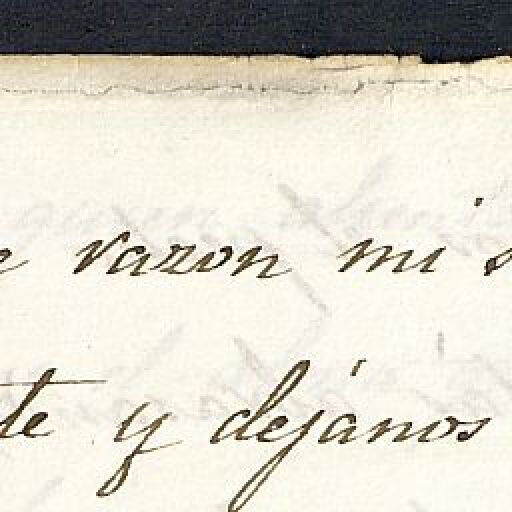 razon mi
te y dejános